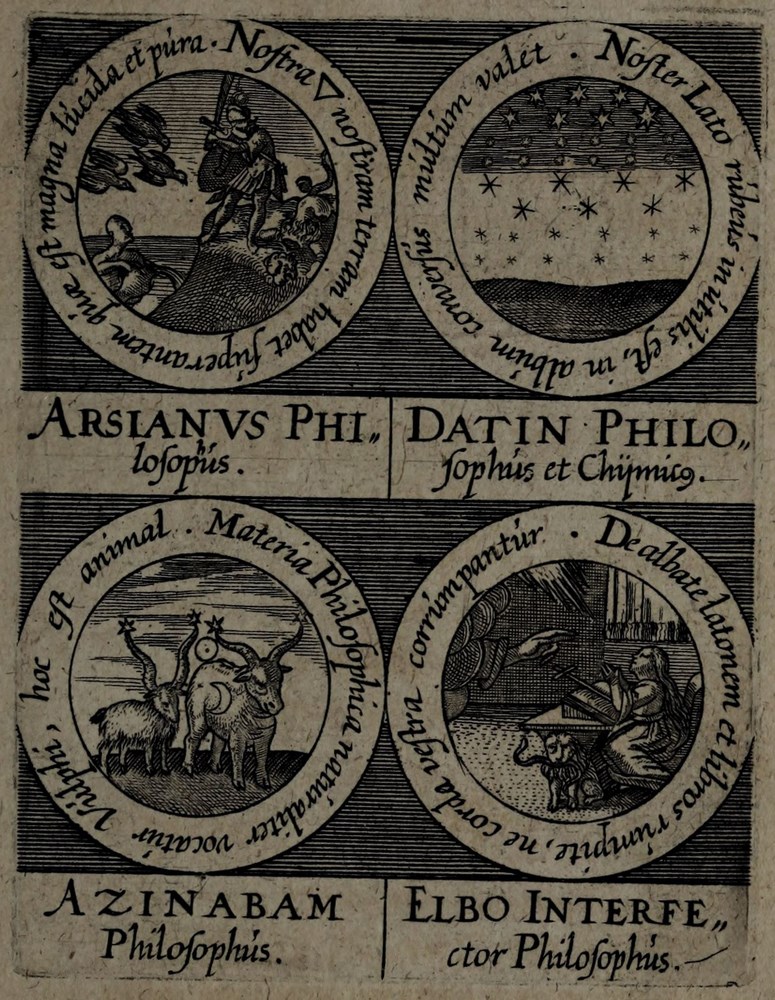 Noſtra ▽ noſtram terram habet ſuperantem quæ eſt magna lúcida et púra.
Noſter Lato rúbeús inútilis eſt, in albúm converſús múltúm valet.
ARSIANVS PHI„
loſophús.
DATIN PHILO„
ſophús et Chÿmicꝰ.
Materia Philoſophica natúraliter vocatúr Vúlphi, hoc eſt animal.
Dealbate latonem et libros rúmpite, ne corda vestra corrúmpantúr.
AZINABAM
Philoſophús.
ELBO INTERFE„
ctor Philoſophús.